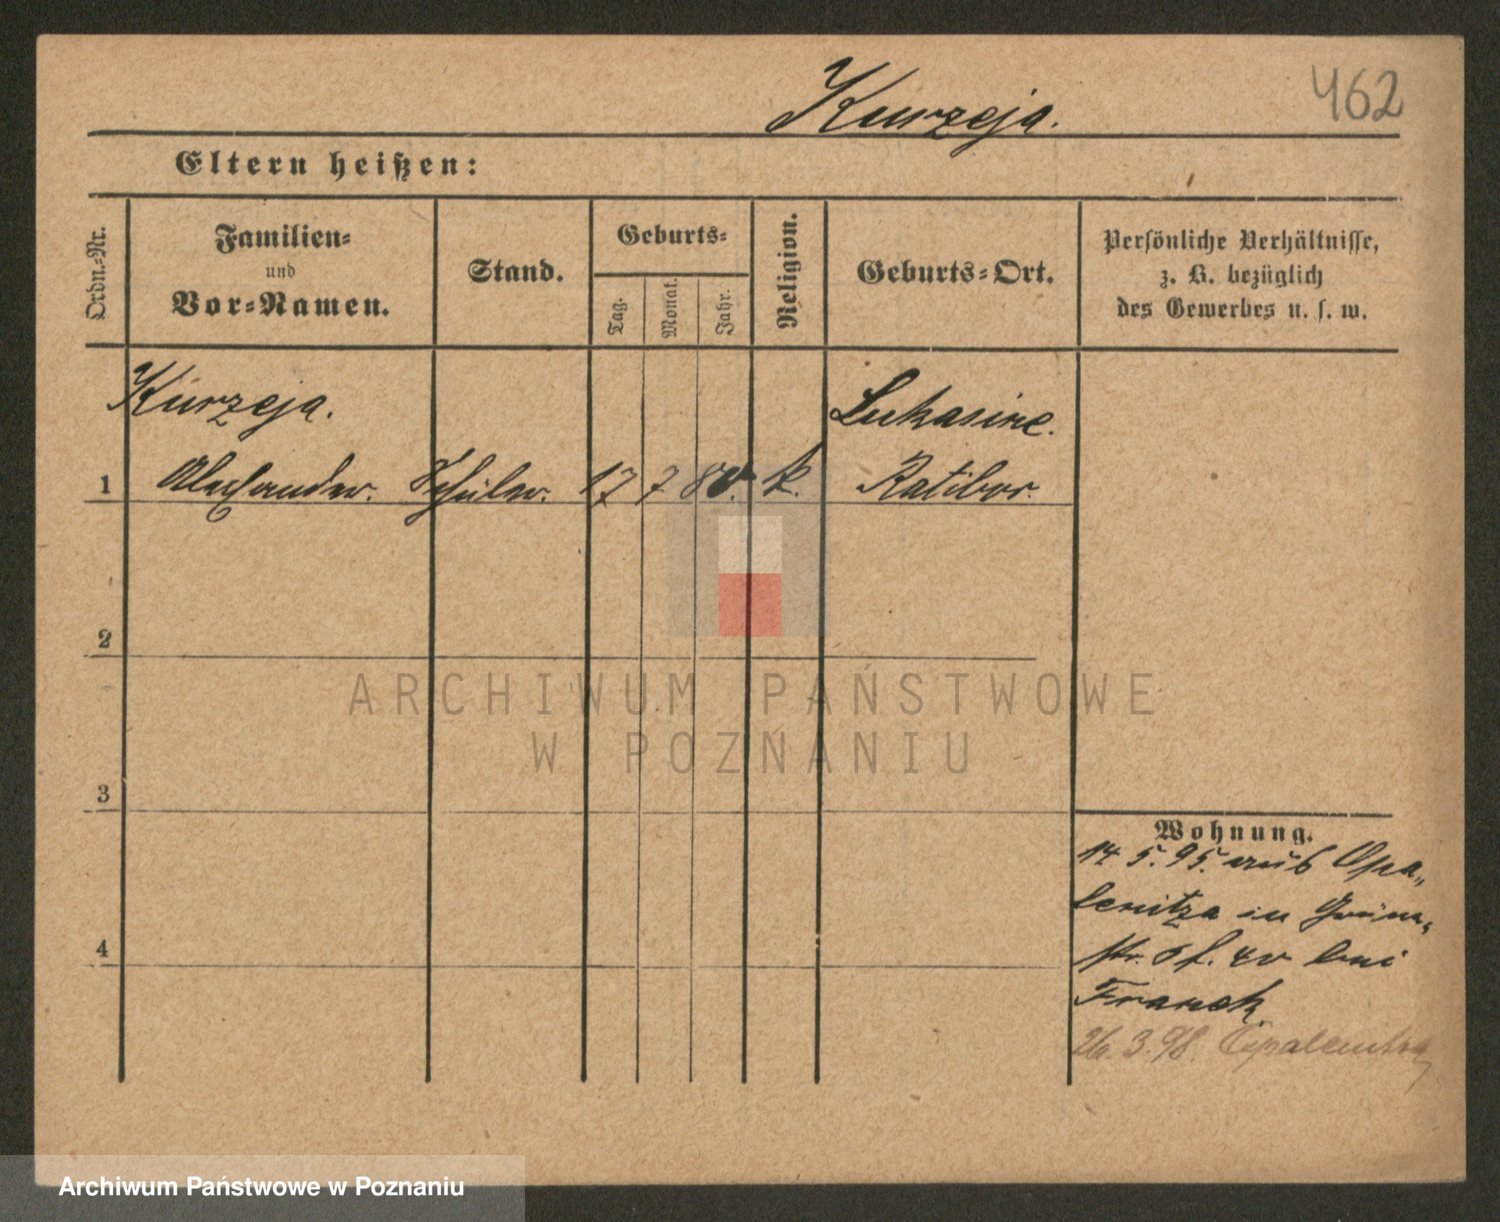 Kurzeja.
462
Eltern heißen:
Ordn.-Nr.
Familien-
und
Vor-Namen.
Stand.
Geburts-
Tag.
Monat.
Jahr.
Religion.
Geburts-Ort.
Persönliche Verhältnisse,
z. B. bezüglich
des Gewerbes u. s. w.
Kurzeja.
Lukasine.
1 Alexander. Schüler. 17 7 80. k. Ratibor.
2
3
4
Wohnung.
14 5. 95. aus Opa„
lenitza in Grün„
str. 40 bei
Franck
26. 3. 98. Opalenitza
ARCHIWUM PAŃSTWOWE
W POZNANIU
Archiwum Państwowe w Poznaniu